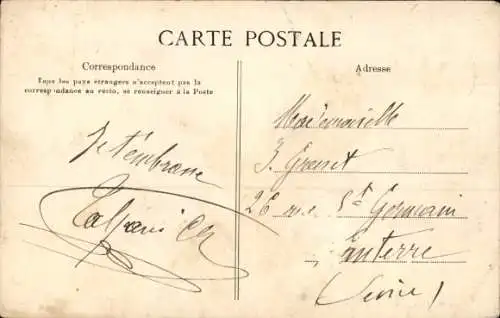 CARTE POSTALE
Correspondance
Tous les pays étrangers n'acceptent pas la
correspondance au recto, se renseigner à la Poste
Je t'embrasse
Adresse
Mademoiselle
J. Granet
26 rue St Germain
Nanterre
(Seine)